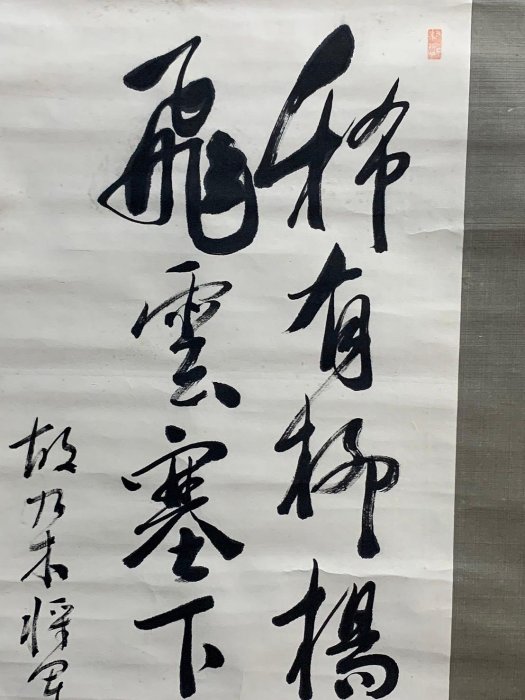 稀有柳楊
飛雲塞下
故乃木将軍